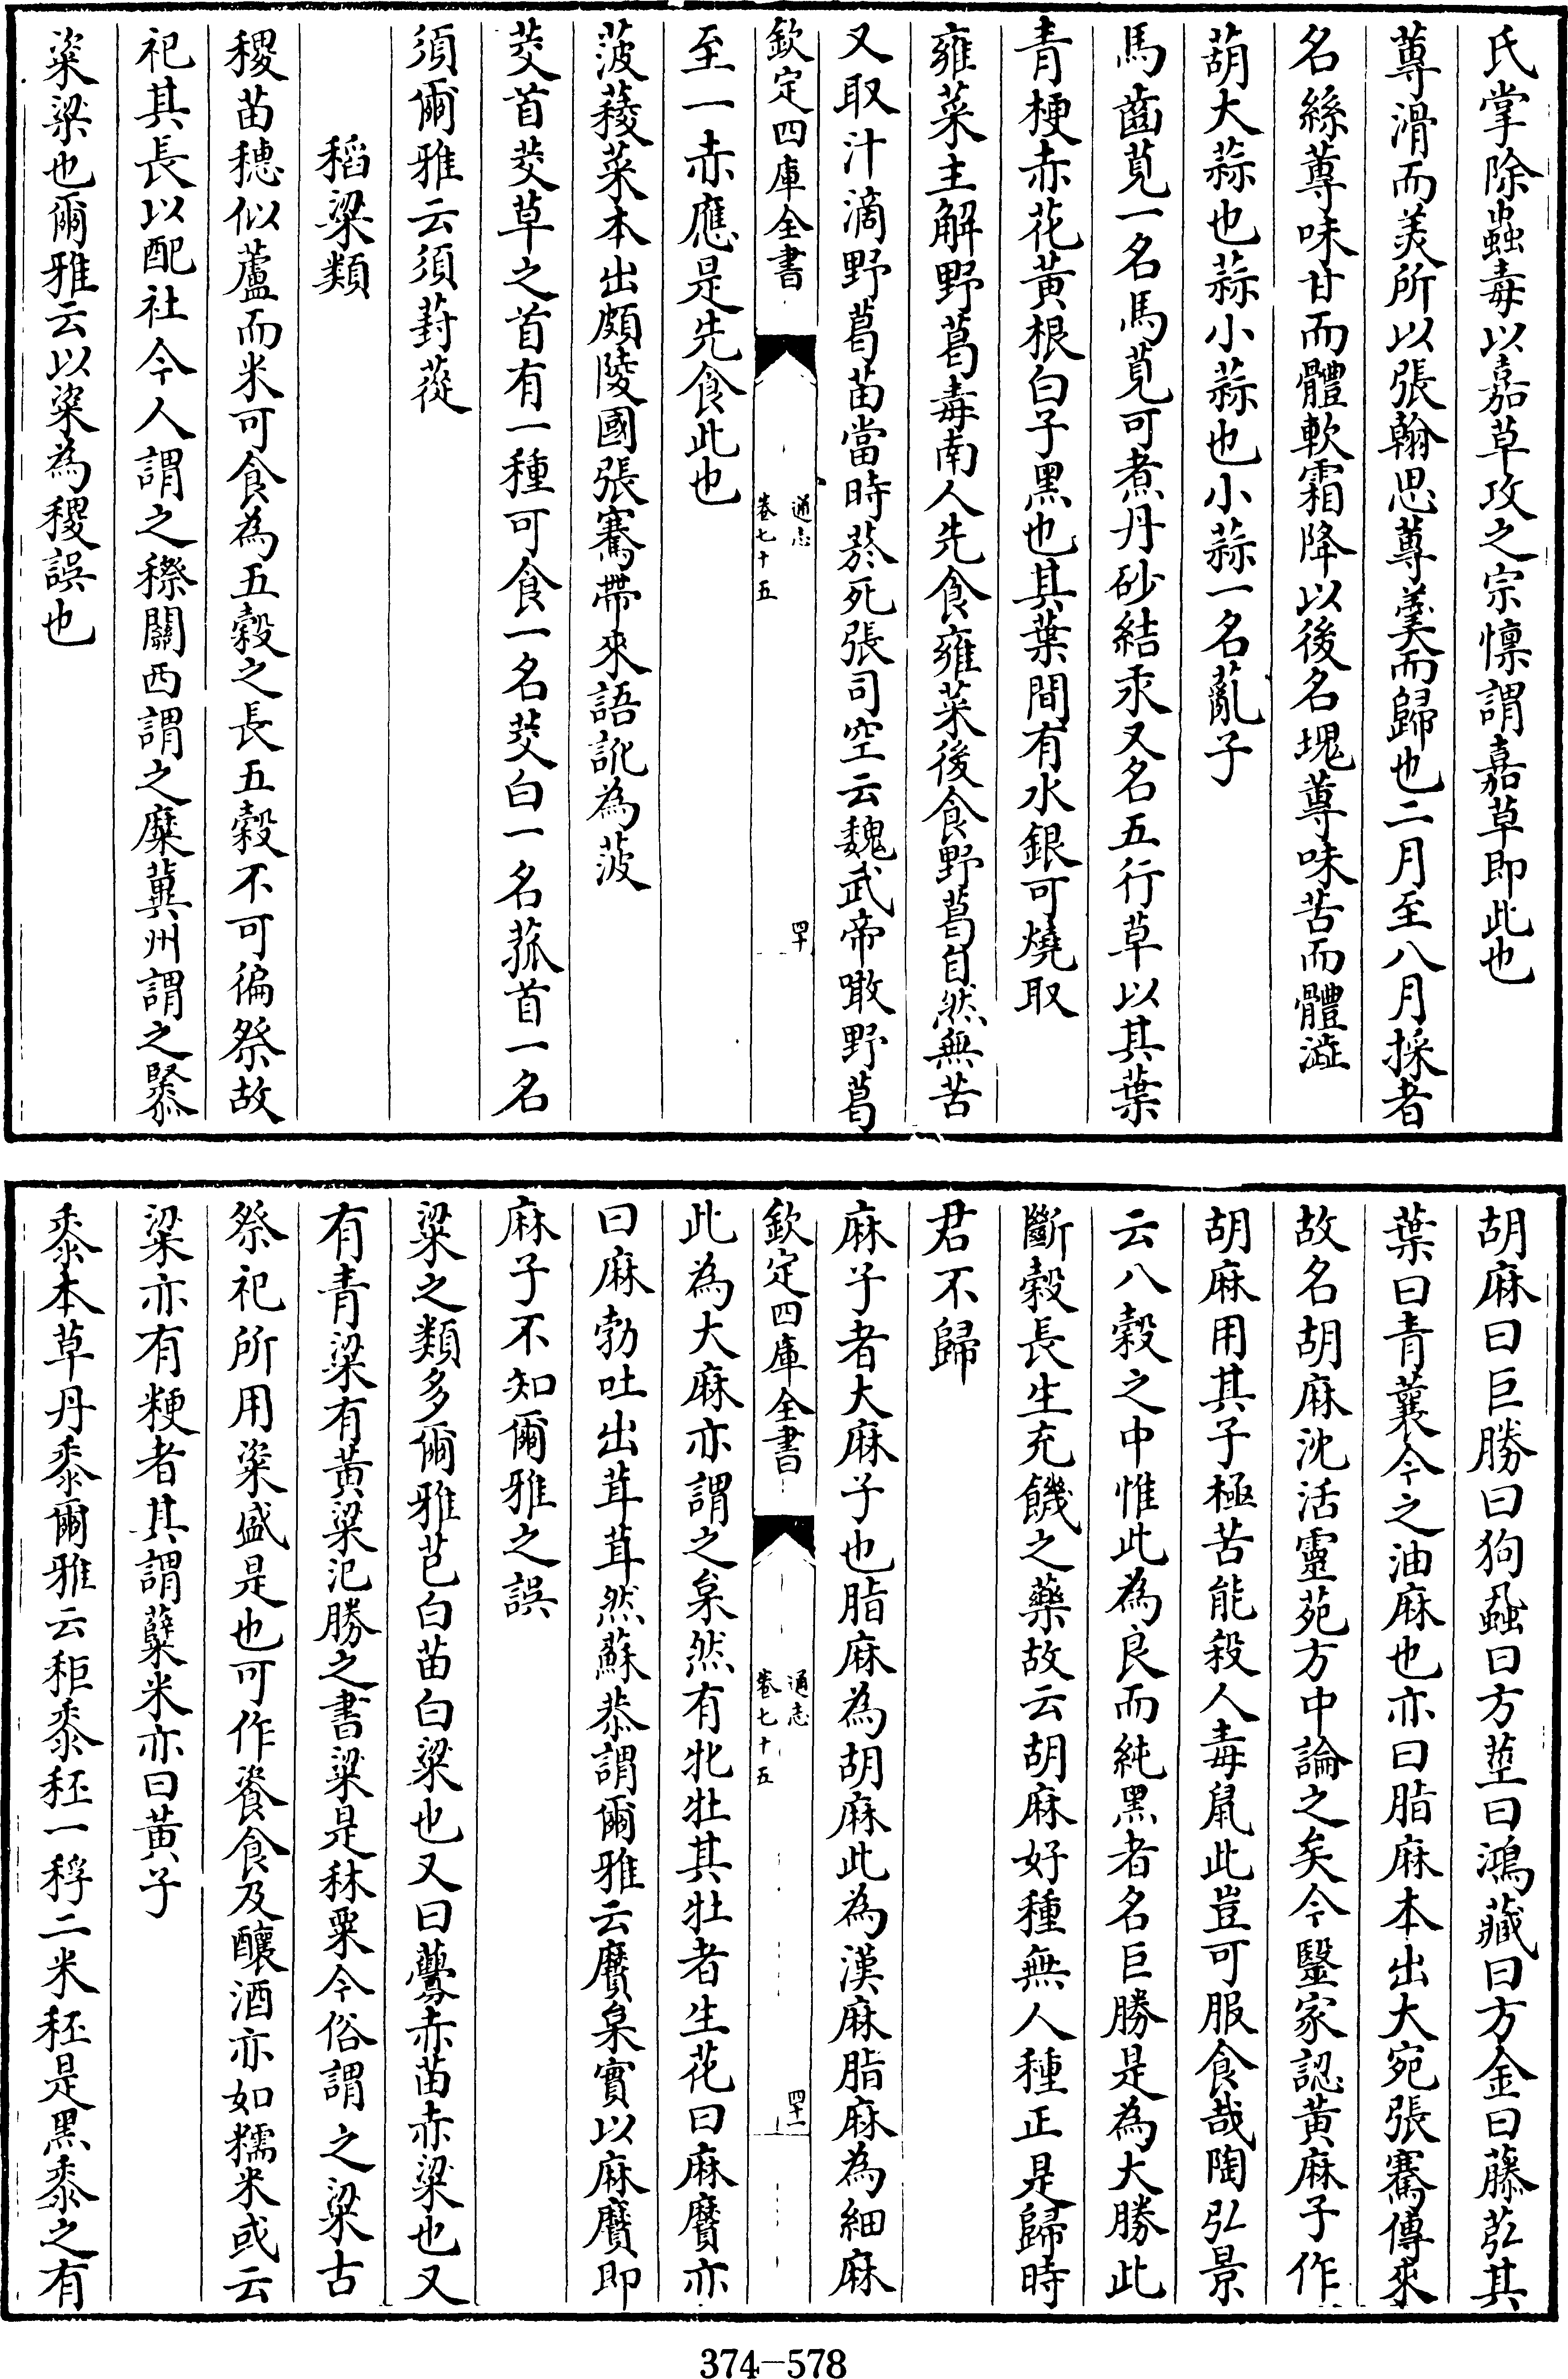 氏掌除蟲毒以嘉草攻之宗懍謂嘉草即此也
蓴滑而美所以張翰思蓴羹而歸也二月至八月採者
名絲蓴味甘而體軟霜降以後名塊蓴味苦而體澁
葫大蒜也蒜小蒜也小蒜一名蒚子
馬齒莧一名馬莧可煮丹砂結汞又名五行草以其葉
青梗赤花黃根白子黑也其葉間有水銀可燒取
雍菜主解野葛毒南人先食雍菜後食野葛自然無苦
又取汁滴野葛苗當時菸死張司空云魏武帝噉野葛
欽定四庫全書
通志
卷七十五
四十
至一赤應是先食此也
菠薐菜本出頗陵國張騫帶來語訛為菠
茭首茭草之首有一種可食一名茭白一名菰首一名
須爾雅云須葑蓯
稻粱類
稷苗穗似蘆而米可食為五穀之長五穀不可徧祭故
祀其長以配社今人謂之穄關西謂之穈冀州謂之𪎭
粢粱也爾雅云以粢為稷誤也
胡麻曰巨勝曰狗蝨曰方莖曰鴻藏曰方金曰藤苰其
葉曰青蘘今之油麻也亦曰脂麻本出大宛張騫傳來
故名胡麻沈活靈苑方中論之矣今醫家認黃麻子作
胡麻用其子極苦能殺人毒鼠此豈可服食哉陶弘景
云八穀之中惟此為良而純黑者名巨勝是為大勝此
斷穀長生充饑之藥故云胡麻好種無人種正是歸時
君不歸
麻子者大麻子也脂麻為胡麻此為漢麻脂麻為細麻
欽定四庫全書
通志
卷七十五
四十一
此為大麻亦謂之枲然有牝牡其牡者生花曰麻黂亦
曰麻勃吐出茸茸然蘇恭謂爾雅云黂枲實以麻黂即
麻子不知爾雅之誤
粱之類多爾雅芑白苗白粱也又曰虋赤苗赤粱也又
有青粱有黃粱氾勝之書粱是秫粟今俗謂之粱古
祭祀所用粢盛是也可作餈食及釀酒亦如糯米或云
粱亦有粳者其謂糵米亦曰黃子
黍本草丹黍爾雅云秬黍秠一稃二米秠是黑黍之有
374-578